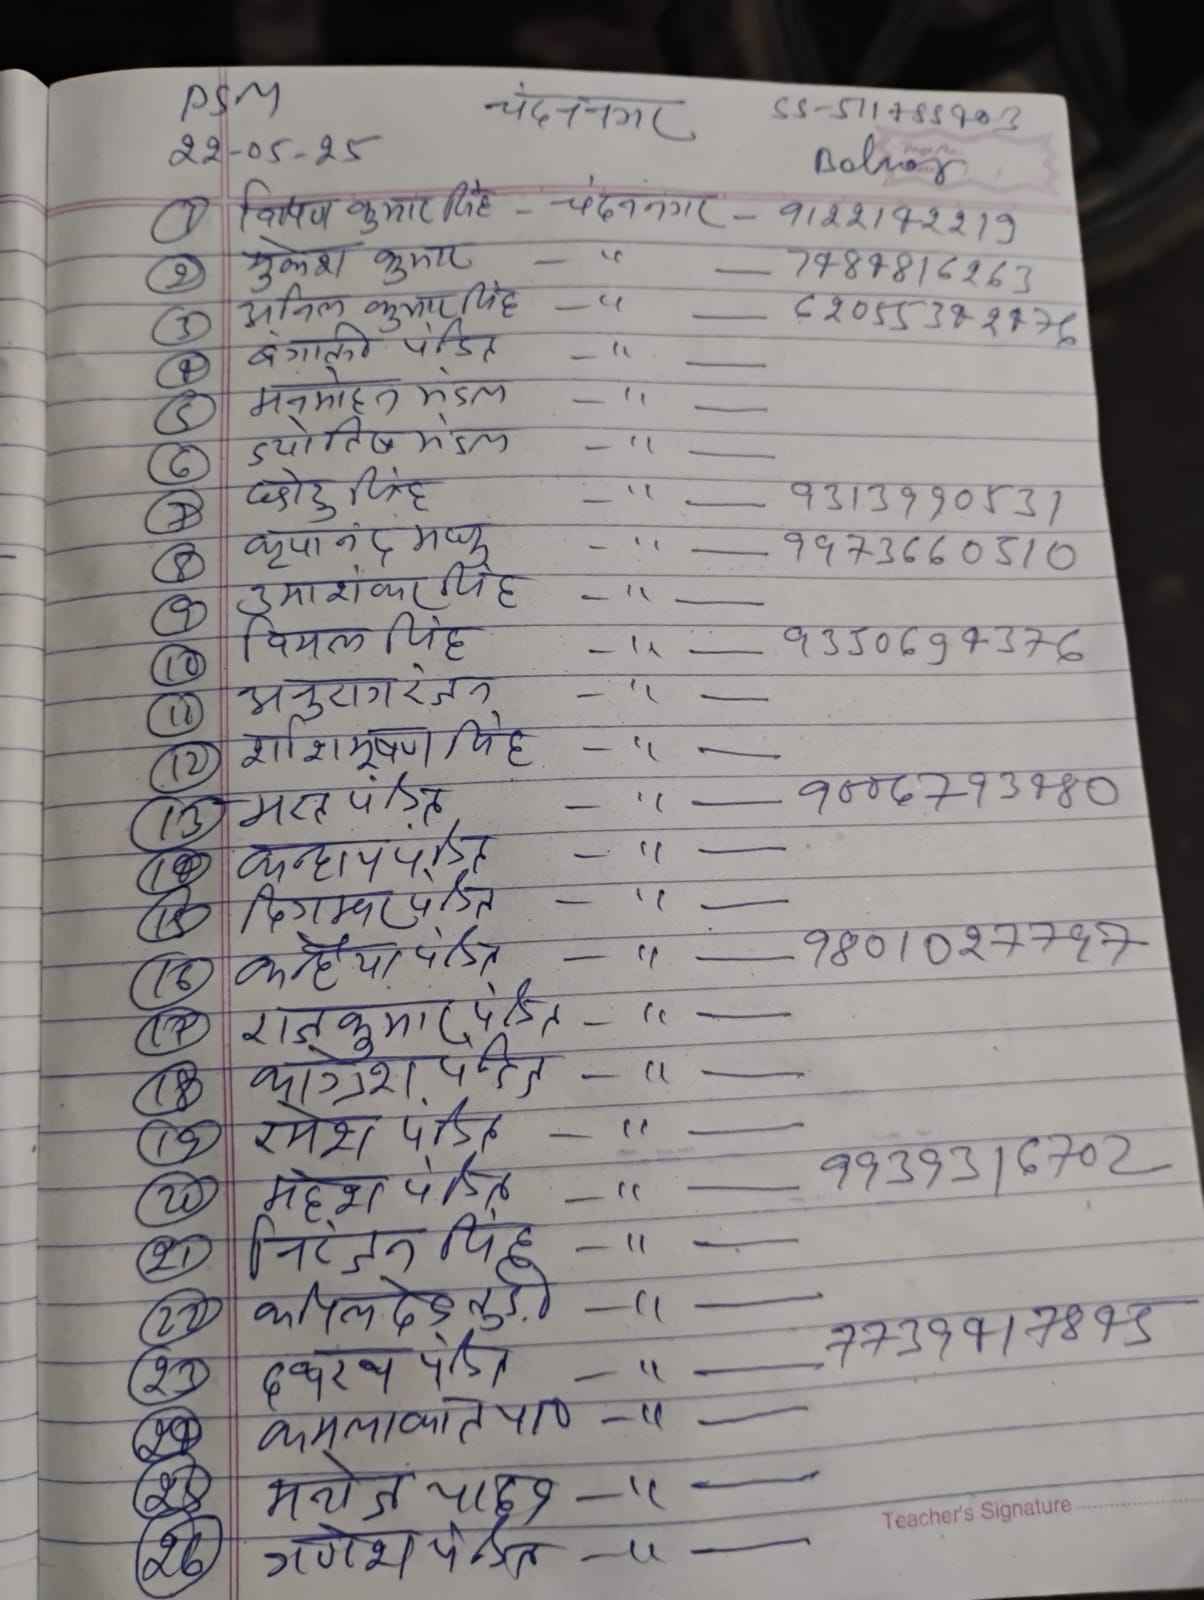 PSM चंदननगर SS-511755903
22-05-25 Balraj
① विपिन कुमार सिंह - चंदननगर - 9122142219
② मुकेश कुमार - " - 7484816263
③ अनिल कुमार सिंह - " - 62055342476
④ बंगाली पंडित - " -
⑤ मनमोहन मंडल - " -
⑥ ज्योतिष मंडल - " -
⑦ छोटु सिंह - " - 9313990531
⑧ कृपानंद - " - 9973660510
⑨ उमाशंकर सिंह - " -
⑩ विमल सिंह - " - 9350694376
⑪ अनुराग रंजन - " -
⑫ शशिभूषण सिंह - " -
⑬ भरत पंडित - " - 9006793480
⑭ पंडित - " -
⑮ दिगम्बर पंडित - " -
⑯ कन्हैया पंडित - " - 9801027797
⑰ राजकुमार पंडित - " -
⑱ पंडित - " -
⑲ रमेश पंडित - " -
⑳ महेश पंडित - " - 9939316702
㉑ निरंजन सिंह - " -
㉒ कपिलदेव - " -
㉓ दशरथ पंडित - " - 7739417893
㉔ कमलाकांत - " -
㉕ मनोज यादव - " -
㉖ गणेश पंडित - " -
Teacher's Signature